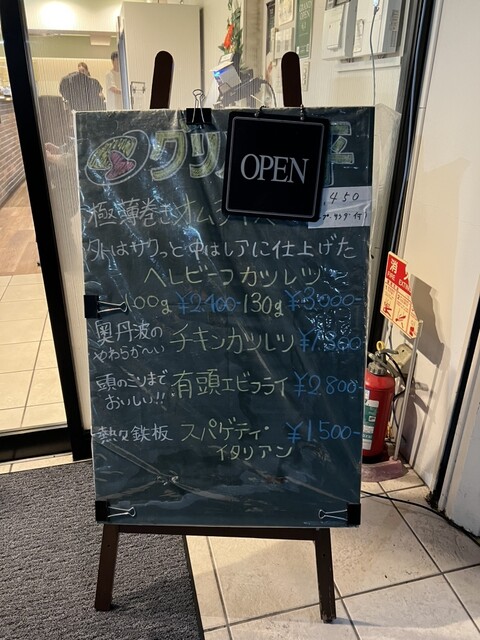 OPEN
極薄巻き オムライス
450
外はサクっと中はレアに仕上げた
ヘレビーフカツレツ
100g ¥2.400- 130g ¥3.000-
奥丹波の
やわらか〜い チキンカツレツ
頭のミソまで
おいしい!! 有頭エビフライ ¥2.800-
熱々鉄板 スパゲティ・イタリアン ¥1.500-
消